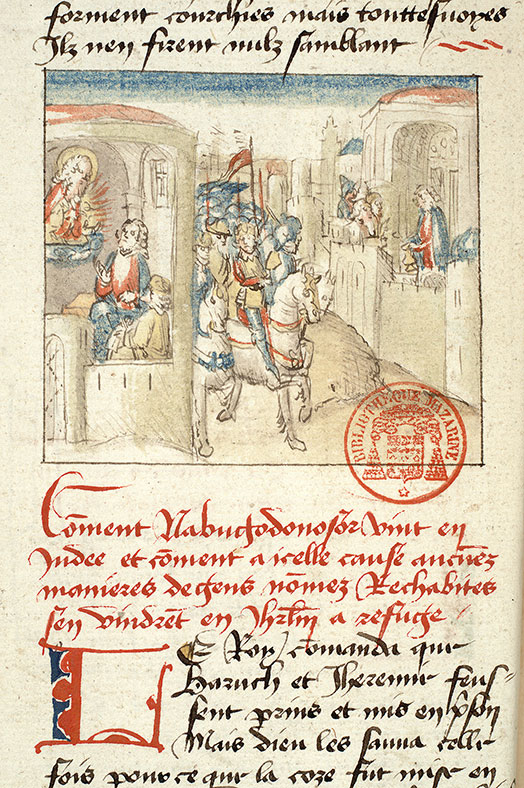 forment courchies mais touttesuoyes
Ilz nen firent nulz samblant
BIBLIOTHEQUE MAZARINE
Coment Nabugodonosor vint en
Judee et coment a icelle cause aucunez
manieres de gens nomez Rechabites
sen vindret en Jhrlm a refuge
LE Roy comanda que
Baruch et Jheremie feus¬
sent prins et mis en pson
Mais dieu les sauua celle
fois pour ce que la coze fut mise en